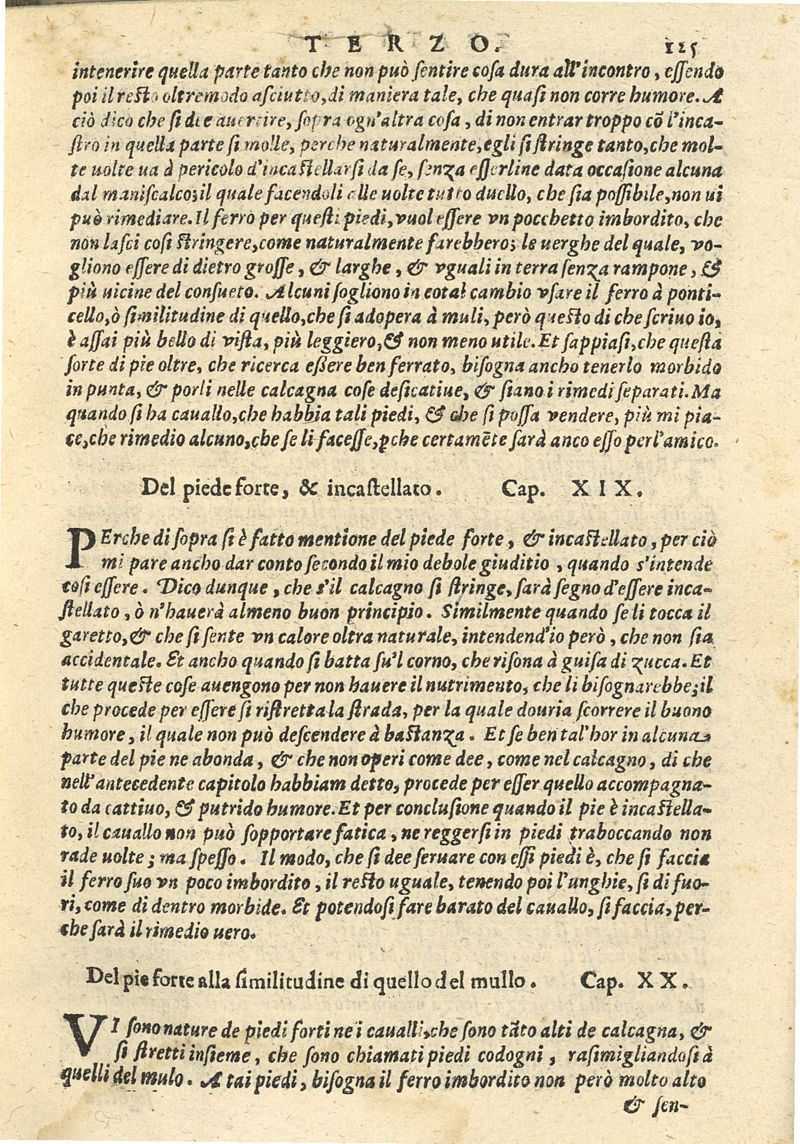 TERZO. 125
intenerire quella parte tanto che non può ſentire coſa dura all'incontro, eſſendo
poi il reſto oltremodo aſciutto, di maniera tale, che quaſi non corre humore. A
ciò dico che ſi dee auertire, ſopra ogn'altra coſa, di non entrar troppo cō l'inca-
ſtro in quella parte ſi molle, perche naturalmente, egli ſi ſtringe tanto, che mol-
te uolte ua à pericolo d'incaſtellarſi da ſe, ſenza eſſerline data occaſione alcuna
dal maniſcalco; il quale facendoli alle uolte tutto duello, che ſia poſſibile, non ui
può rimediare. Il ferro per queſti piedi, vuol eſſere vn pocchetto imbordito, che
non laſci coſi ſtringere, come naturalmente farebbero; le uerghe del quale, vo-
gliono eſſere di dietro groſſe, & larghe, & vguali in terra ſenza rampone, &
più uicine del conſueto. Alcuni ſogliono in cotal cambio vſare il ferro à ponti-
cello, ò ſimilitudine di quello, che ſi adopera à muli, però queſto di che ſcriuo io,
è aſſai più bello di viſta, più leggiero, & non meno utile. Et ſappiaſi, che queſta
ſorte di pie oltre, che ricerca eßere ben ferrato, biſogna ancho tenerlo morbido
in punta, & porli nelle calcagna coſe deſicatiue, & ſiano i rimedi ſeparati. Ma
quando ſi ha cauallo, che habbia tali piedi, & che ſi poſſa vendere, più mi pia-
ce, che rimedio alcuno, che ſe li faceſſe, ꝑche certamēte ſarà anco eſſo per l'amico.
Del piede forte, & incaſtellato. Cap. XIX.
PErche di ſopra ſi è fatto mentione del piede forte, & incaſtellato, per ciò
mi pare ancho dar conto ſecondo il mio debole giuditio, quando s'intende
coſi eſſere. Dico dunque, che s'il calcagno ſi ſtringe, ſarà ſegno d'eſſere inca-
ſtellato, ò n'hauerà almeno buon principio. Similmente quando ſe li tocca il
garetto, & che ſi ſente vn calore oltra naturale, intendend'io però, che non ſia
accidentale. Et ancho quando ſi batta ſu'l corno, che riſona à guiſa di zucca. Et
tutte queſte coſe auengono per non hauere il nutrimento, che li biſognarebbe; il
che procede per eſſere ſi riſtretta la ſtrada, per la quale douria ſcorrere il buono
humore, il quale non può deſcendere à baſtanza. Et ſe ben tal'hor in alcuna
parte del pie ne abonda, & che non operi come dee, come nel calcagno, di che
nell'antecedente capitolo habbiam detto, procede per eſſer quello accompagna-
to da cattiuo, & putrido humore. Et per concluſione quando il pie è incaſtella-
to, il cauallo non può ſopportare fatica, ne reggerſi in piedi traboccando non
rade uolte; ma ſpeſſo. Il modo, che ſi dee ſeruare con eſſi piedi è, che ſi faccia
il ferro ſuo vn poco imbordito, il reſto uguale, tenendo poi l'unghie, ſi di fuo-
ri, come di dentro morbide. Et potendoſi fare barato del cauallo, ſi faccia, per-
che ſarà il rimedio uero.
Del pie forte alla ſimilitudine di quello del mullo. Cap. XX.
VI ſono nature de piedi forti ne i caualli, che ſono tāto alti de calcagna, &
ſi ſtretti inſieme, che ſono chiamati piedi codogni, raſimigliandoſi à
quelli del mulo. A tai piedi, biſogna il ferro imbordito non però molto alto
& ſen-